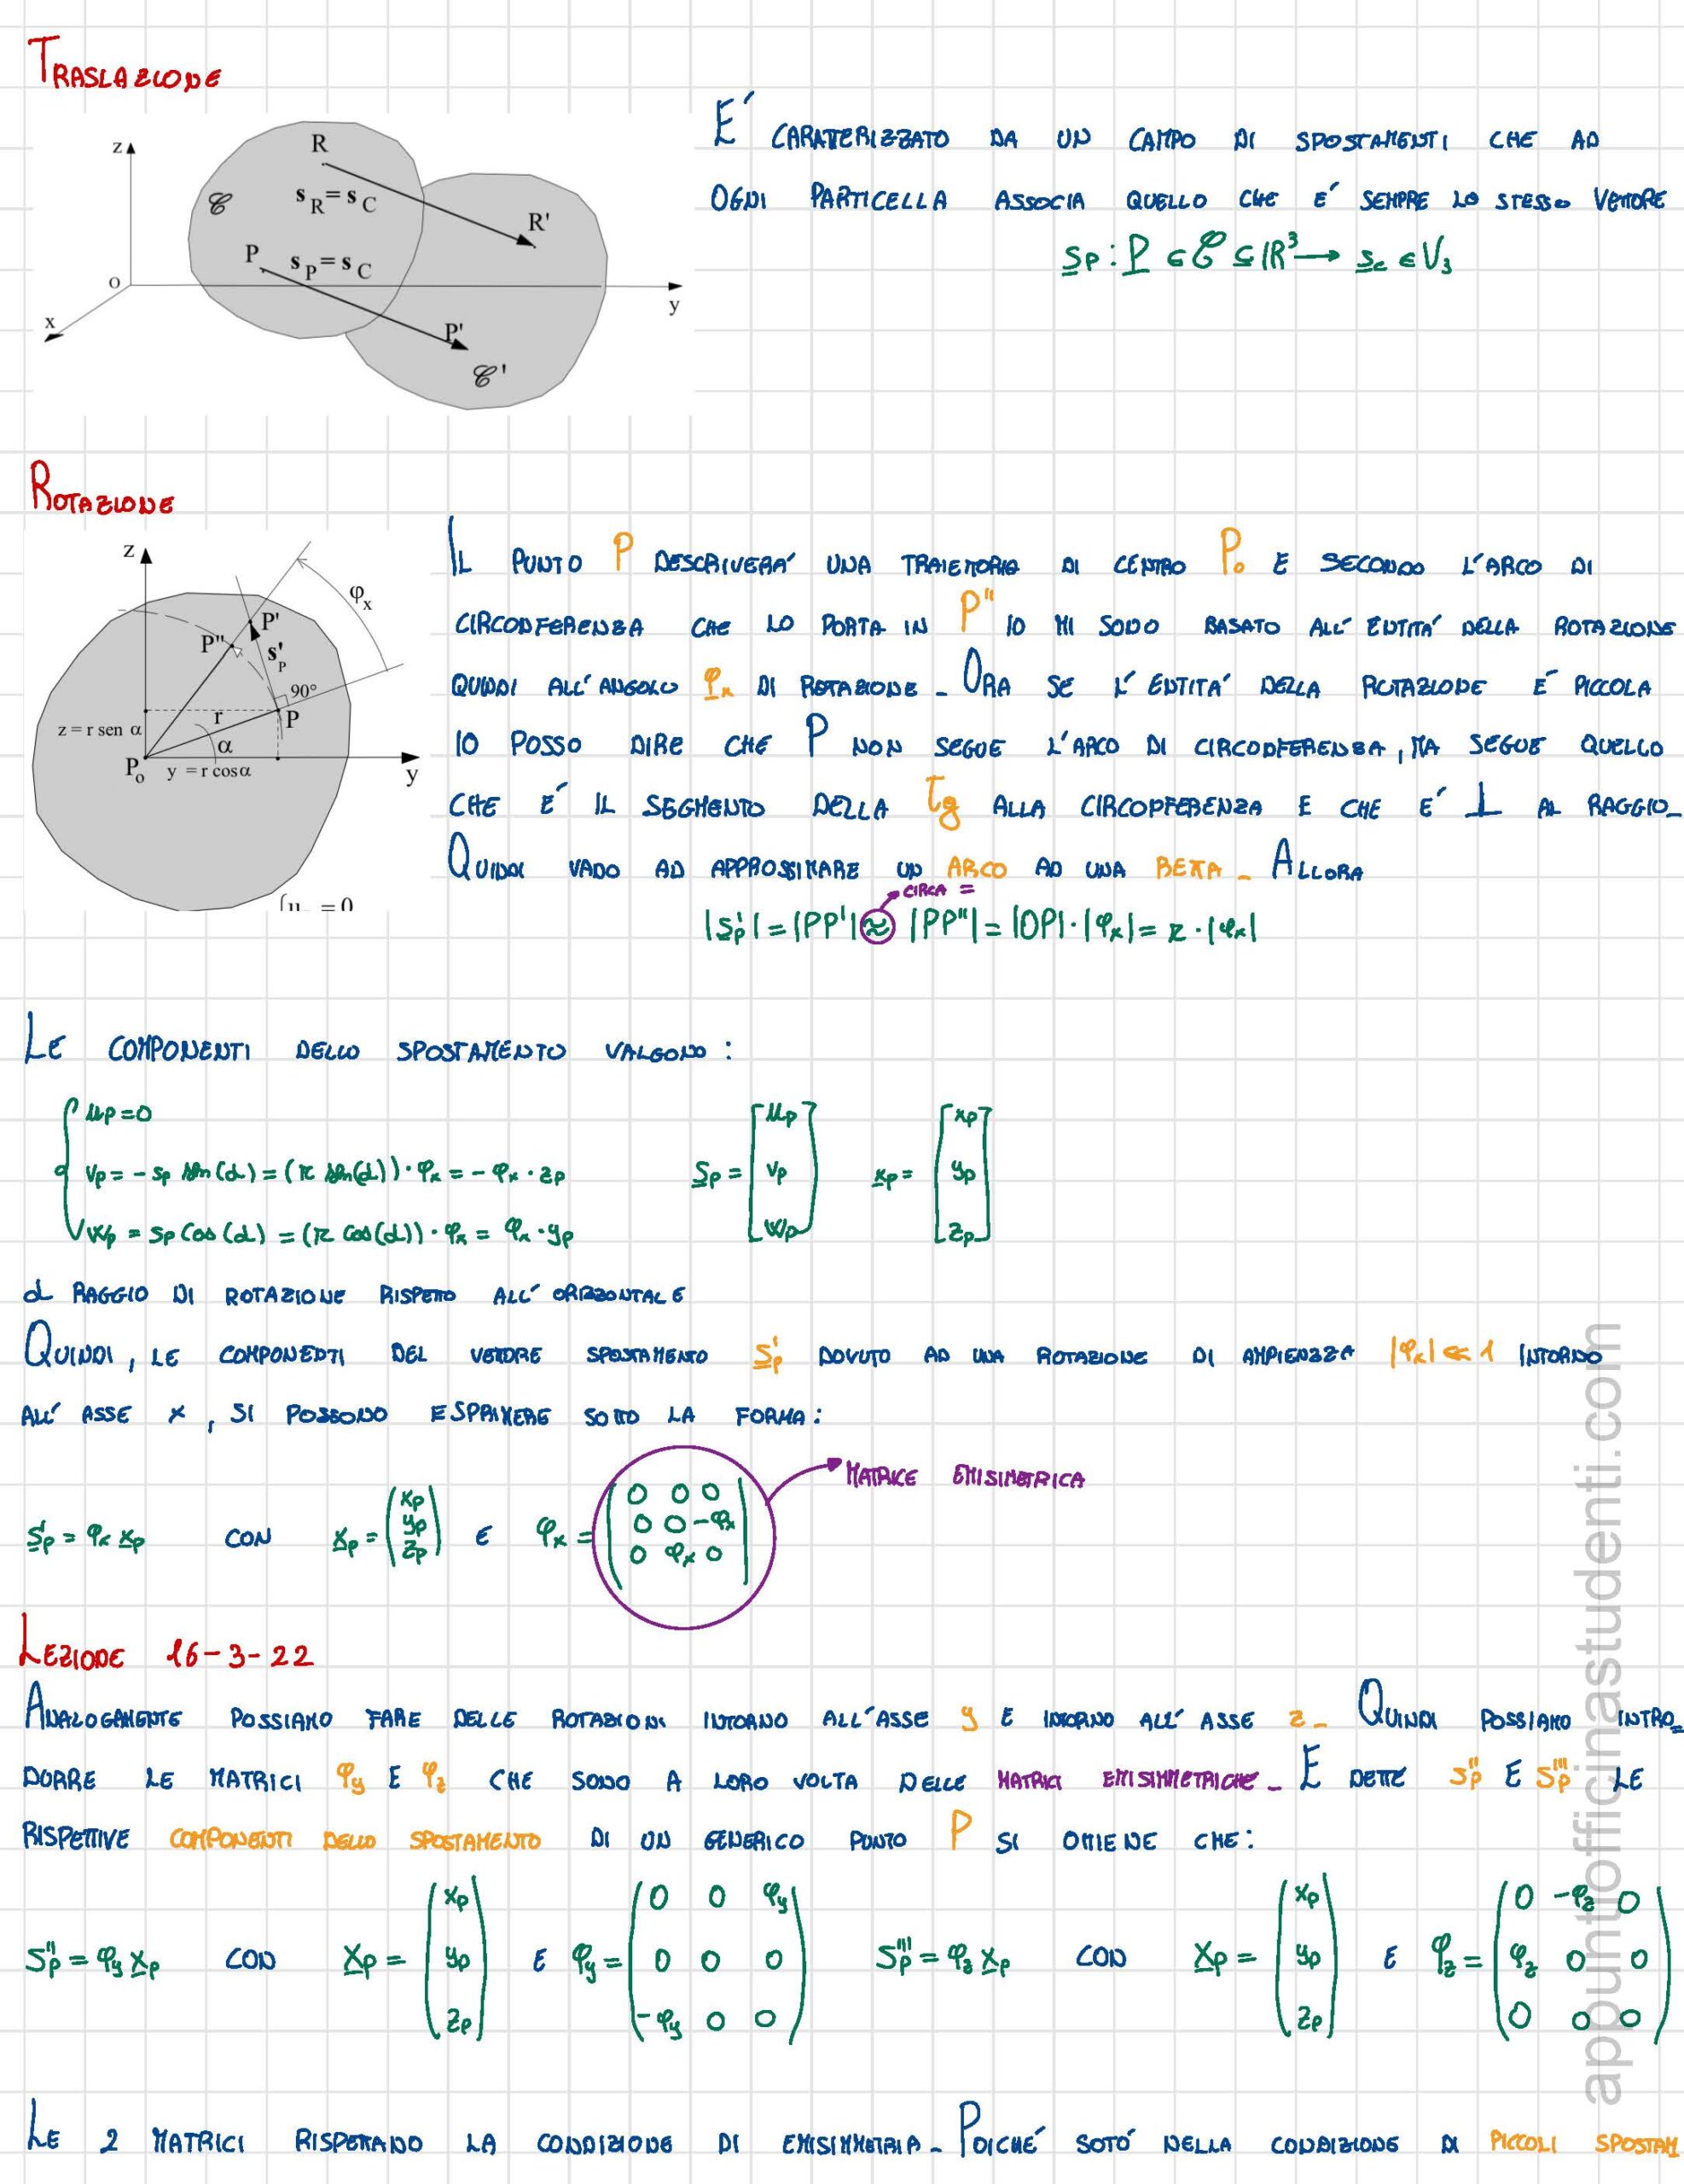 TRASLAZIONE
z
R
𝒞
s R = s C
R'
P
s P = s C
o
y
x
P'
𝒞 '
E' CARATERIZZATO DA UN CAMPO DI SPOSTAMENTI CHE AD
OGNI PARTICELLA ASSOCIA QUELLO CHE E' SEMPRE LO STESSO VETTORE
s̲p : P̲ ∈ 𝒞 ⊆ ℝ³ → s̲c ∈ V₃
ROTAZIONE
z
φx
P'
P''
s'P
90°
r
P
z = r sen α
α
Po
y = r cosα
y
{u = 0
IL PUNTO P DESCRIVERA' UNA TRAIETTORIA DI CENTRO P₀ E SECONDO L'ARCO DI
CIRCONFERENZA CHE LO PORTA IN P'' IO MI SONO BASATO ALL' ENTITA' DELLA ROTAZIONE
QUINDI ALL' ANGOLO φx DI ROTAZIONE_ ORA SE L' ENTITA' DELLA ROTAZIONE E' PICCOLA
IO POSSO DIRE CHE P NON SEGUE L'ARCO DI CIRCONFERENZA, MA SEGUE QUELLO
CHE E' IL SEGMENTO DELLA Tg ALLA CIRCONFERENZA E CHE E' ⊥ AL RAGGIO_
QUINDI VADO AD APPROSSIMARE UN ARCO AD UNA RETTA _ ALLORA
CIRCA =
|s̲'p| = |PP'| ≈ |PP''| = |OP| · |φx| = r · |φx|
LE COMPONENTI DELLO SPOSTAMENTO VALGONO :
{ up = 0
vp = - sp sin(α) = (r sin(α)) · φx = - φx · zp
wp = sp cos(α) = (r cos(α)) · φx = φx · yp
s̲p = [up vp wp] x̲p = [xp yp zp]
α RAGGIO DI ROTAZIONE RISPETTO ALL' ORIZZONTALE
QUINDI, LE COMPONENTI DEL VETTORE SPOSTAMENTO s̲'p DOVUTO AD UNA ROTAZIONE DI AMPIENZZA |φx| ≪ 1 INTORNO
ALL' ASSE x , SI POSSONO ESPRIMERE SOTTO LA FORMA :
MATRICE EMISIMETRICA
s̲'p = φx x̲p CON x̲p = (xp yp zp) E φx = (0 0 0
0 0 -φx
0 φx 0)
LEZIONE 16-3-22
ANALOGAMENTE POSSIAMO FARE DELLE ROTAZIONI INTORNO ALL'ASSE y E INTORNO ALL' ASSE z_ QUINDI POSSIAMO INTRO_
DURRE LE MATRICI φy E φz CHE SONO A LORO VOLTA DELLE MATRICI EMISIMMETRICHE_ E DETTE s''p E s'''p LE
RISPETTIVE COMPONENTI DELLO SPOSTAMENTO DI UN GENERICO PUNTO P SI OTTIENE CHE :
s''p = φy x̲p CON x̲p = (xp yp zp) E φy = (0 0 φy
0 0 0
-φy 0 0)
s'''p = φz x̲p CON x̲p = (xp yp zp) E φz = (0 -φz 0
φz 0 0
0 0 0)
LE 2 MATRICI RISPETTANO LA CONDIZIONE DI EMISIMMETRIA_ POICHE' SOTO' NELLA CONDIZIONE DI PICCOLI SPOSTAM
appuntiofficinastudenti.com